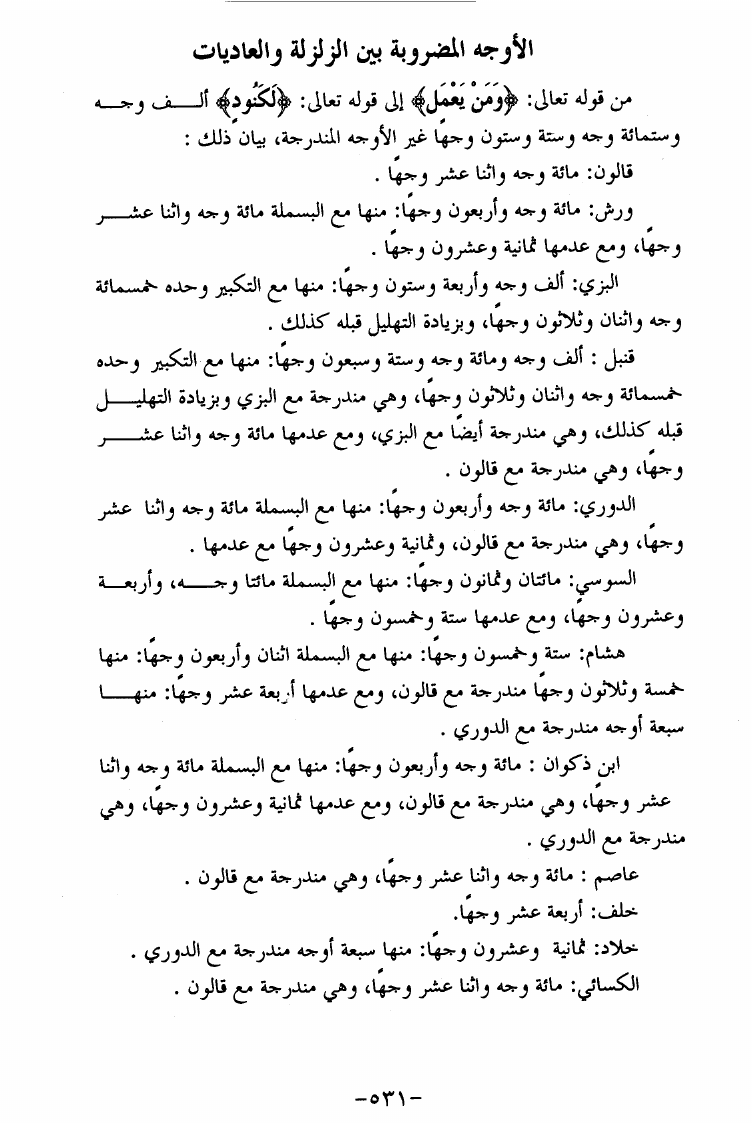 الأوجه المضروبة بين الزلزلة والعاديات
من قوله تعالى: ﴿وَمَنْ يَعْمَلْ﴾ إلى قوله تعالى: ﴿لَكَنُودٍ﴾ ألـــف وجـــه
وستمائة وجه وستة وستون وجهًا غير الأوجه المندرجة، بيان ذلك :
قالون: مائة وجه واثنا عشر وجهًا .
ورش: مائة وجه وأربعون وجهًا: منها مع البسملة مائة وجه واثنا عشـــر
وجهًا، ومع عدمها ثمانية وعشرون وجهًا .
البزي: ألف وجه وأربعة وستون وجهًا: منها مع التكبير وحده خمسمائة
وجه واثنان وثلاثون وجهًا، وبزيادة التهليل قبله كذلك .
قنبل : ألف وجه ومائة وجه وستة وسبعون وجهًا: منها مع التكبير وحده
خمسمائة وجه واثنان وثلاثون وجهًا، وهي مندرجة مع البزي وبزيادة التهليـــل
قبله كذلك، وهي مندرجة أيضًا مع البزي، ومع عدمها مائة وجه واثنا عشـــر
وجهًا، وهي مندرجة مع قالون .
الدوري: مائة وجه وأربعون وجهًا: منها مع البسملة مائة وجه واثنا عشر
وجهًا، وهي مندرجة مع قالون، وثمانية وعشرون وجهًا مع عدمها .
السوسي: مائتان وثمانون وجهًا: منها مع البسملة مائتا وجـــه، وأربعـــة
وعشرون وجهًا، ومع عدمها ستة وخمسون وجهًا .
هشام: ستة وخمسون وجهًا: منها مع البسملة اثنان وأربعون وجهًا: منها
خمسة وثلاثون وجهًا مندرجة مع قالون، ومع عدمها أربعة عشر وجهًا: منهـــا
سبعة أوجه مندرجة مع الدوري .
ابن ذكوان : مائة وجه وأربعون وجهًا: منها مع البسملة مائة وجه واثنا
عشر وجهًا، وهي مندرجة مع قالون، ومع عدمها ثمانية وعشرون وجهًا، وهي
مندرجة مع الدوري .
عاصم : مائة وجه واثنا عشر وجهًا، وهي مندرجة مع قالون .
خلف: أربعة عشر وجهًا.
خلاد: ثمانية وعشرون وجهًا: منها سبعة أوجه مندرجة مع الدوري .
الكسائي: مائة وجه واثنا عشر وجهًا، وهي مندرجة مع قالون .
-٥٣١-